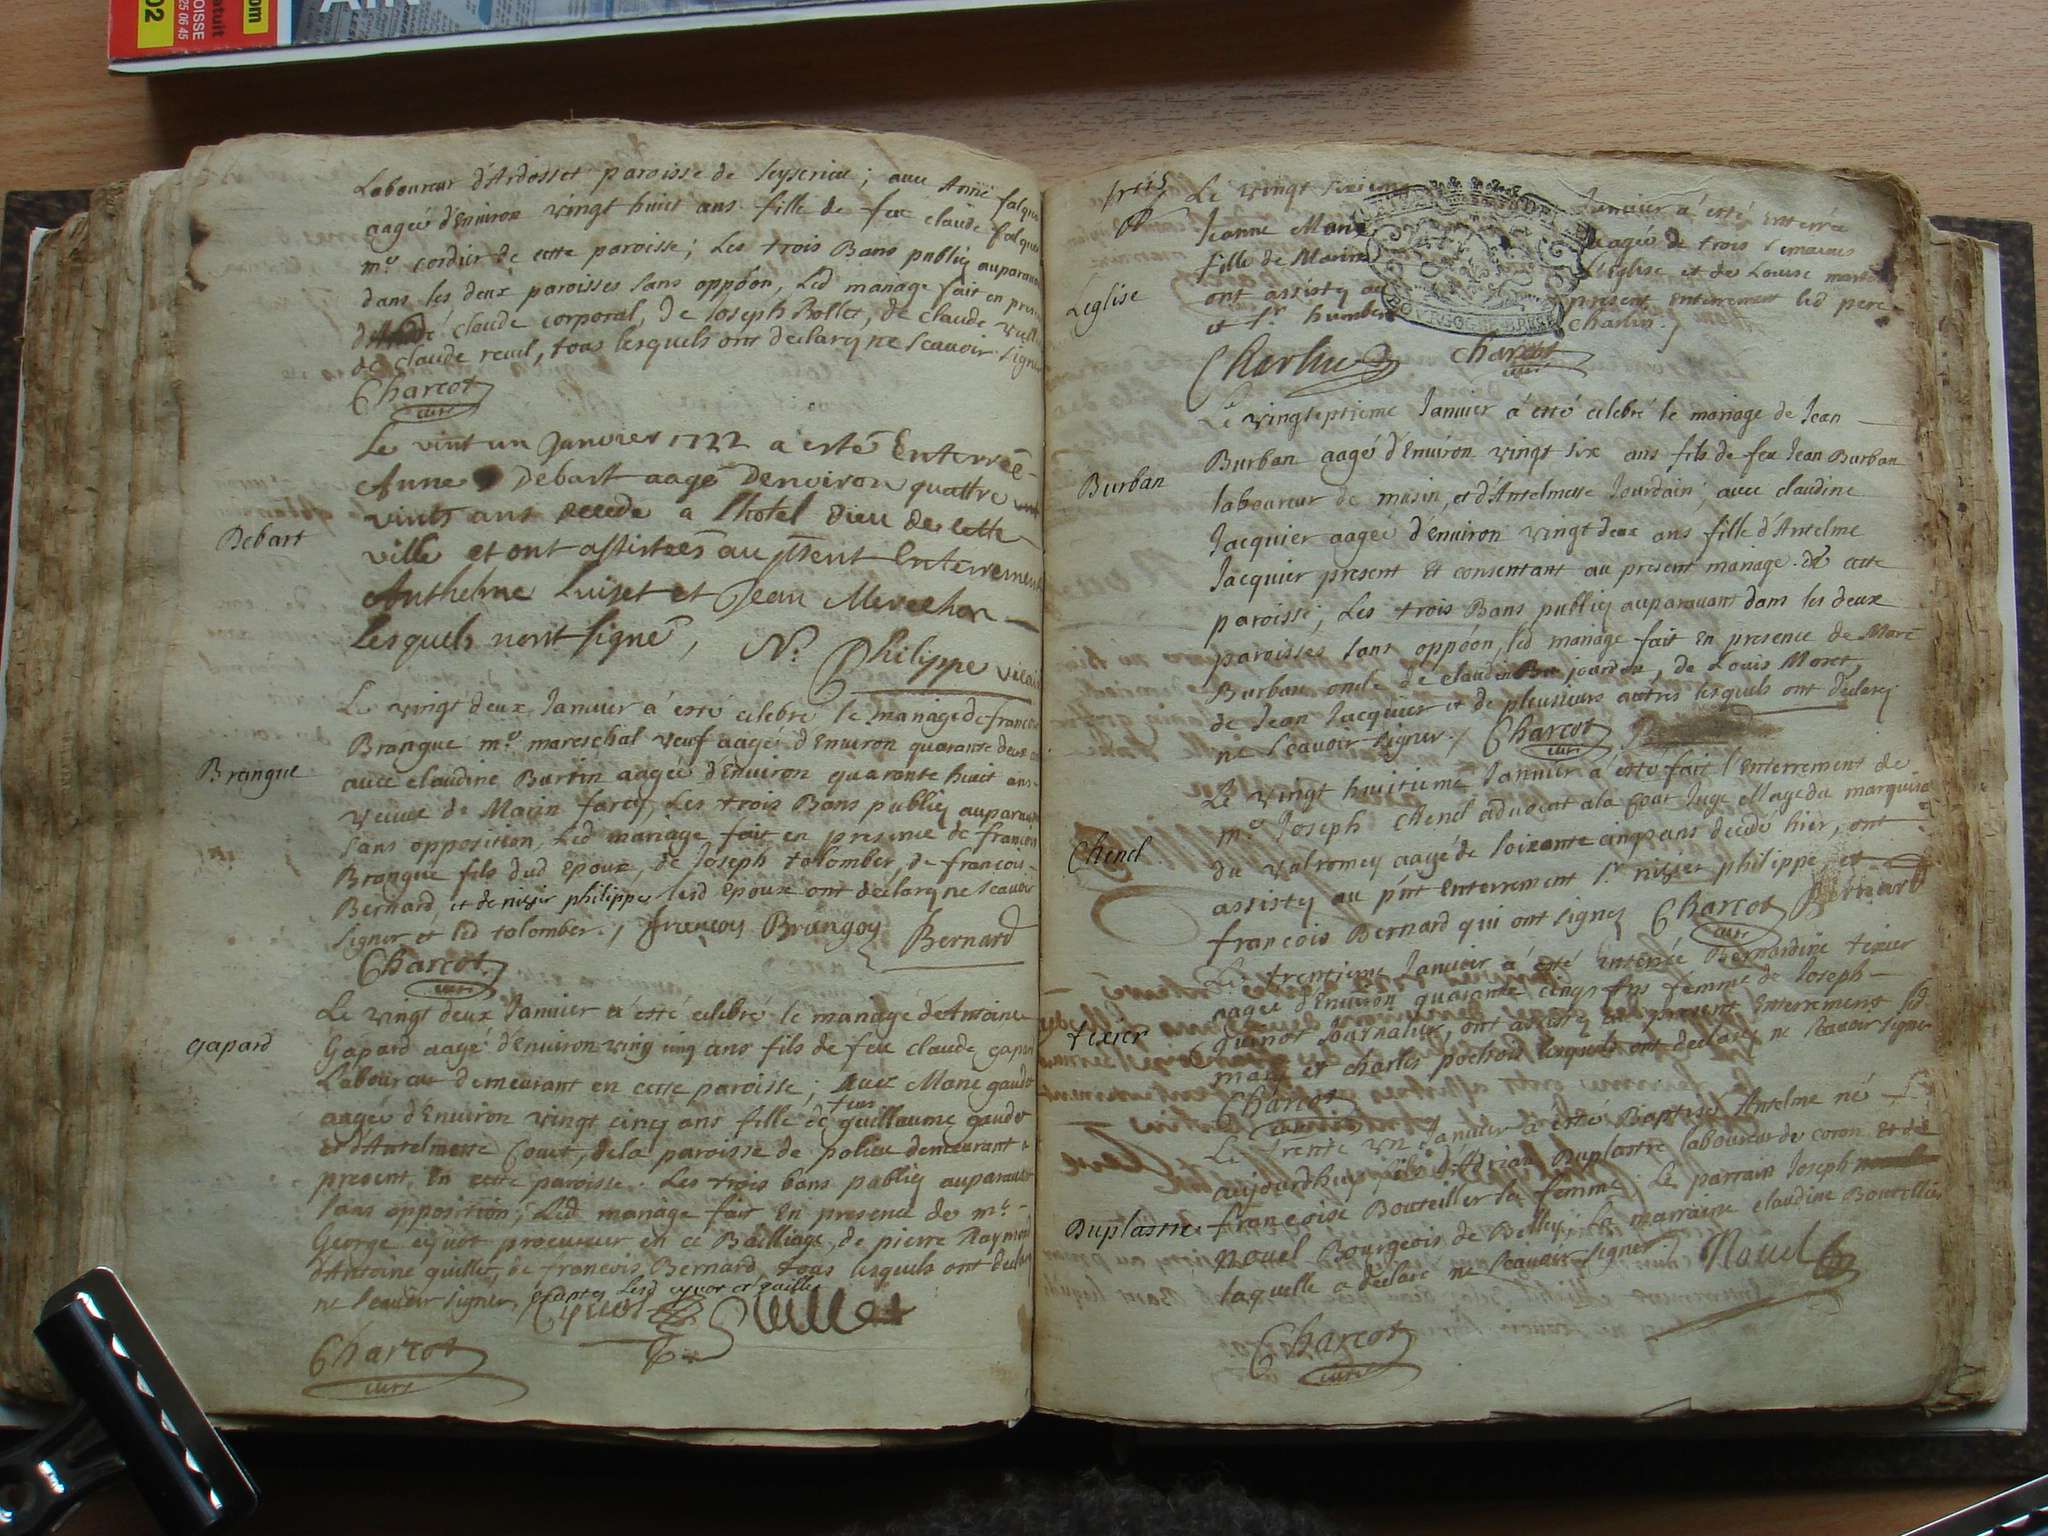 02
25 06 45
OISSE
gratuit
om
Ain
Laboureur d'Ardosset paroisse de Seyserieu ; avec Anne falque
aagée d'Environ vingt huict ans fille de feu claude falque
me cordier de cette paroisse ; Les trois Bans publiez auparavant
dans les deux paroisses sans oppōon, Led mariage fait en
claude corporal, de Joseph Rollet, de claude
de claude reuil, tous lesquels ont declarez ne Scavoir signer
Charcot
curé
Debart
Le vint un Janvier 1722 a esté Enterréé
Anne Debart aagé Denviron quattre
vints ans decede a lhotel Dieu de cette
ville et ont assistées au pñent Enterrement
Anthelme Luiset et Jean Merechon
Lesquels nont signé, N. Philippe vicai
Brangue
Le vingt deux Janvier à esté celebré le mariage de francois
Brangue me mareschal veuf aagé d'Environ quarante deux
avec claudine Burtin aagée d'Environ quarante huict ans
veuve de Marin farcy, Les trois Bans publiez auparavant
sans opposition, Led mariage fait en presence de francois
Brangue fils dud Epoux, de Joseph tolomber, de francois
Bernard, et de nizier philippe, lesd Epoux ont declarez ne scavoir
signer et led tolomber. francois Brangoy Bernard
Charcot
curé
Gapard
Le vingt deux Janvier a esté celebré le mariage d'Antoine
Gapard aagé d'Environ vingt cinq ans fils de feu claude gapard
Laboureur demeurant en cette paroisse ; avec Marie gaudet
aagée d'Environ vingt cinq ans fille de feu guillaume gaudet
et d'Antelmette Couet, de la paroisse de polieu demeurant a
present En cette paroisse. Les trois bans publiez auparavant
sans opposition, Led mariage fait En presence de me
George cyvot procureur en ce Bailliage, de pierre Raymond
d'Antoine quillet, de francois Bernard, tous lesquels ont declaré
ne scavoir signer, exceptez Lesd cyvot et quillet
Cyvot Quillet
Charcot
curé
Leglise
Le vingt sixieme Janvier a esté Enterrée
Jeanne Marie aagée de trois semaines
fille de Marin L'Eglise et de Louise
ont assistez au present Enterrement led pere
et Sr humbert Charlin.
Charlin Charcot
curé
Burban
Le vingtseptieme Janvier a esté celebré le mariage de Jean
Burban aagé d'Environ vingt six ans fils de feu Jean Burban
laboureur de musin, et d'Antelmette Jourdain ; avec claudine
Jacquier aagée d'Environ vingt deux ans fille d'Antelme
Jacquier present Et consentant au present mariage de cette
paroisse ; Les trois Bans publiez auparavant dans les deux
paroisses sans oppōon, led mariage fait En presence de Marc
Burban oncle de claude jourdan, de Louis Moret,
de Jean Jacquier et de plusieurs autres lesquels ont declarez
ne scavoir signer. Charcot
curé
Chenel
Le vingt huitieme Janvier a esté fait l'Enterrement de
me Joseph Chenel advocat a la Cour Juge Mage du marquisat
du valromey aagé de soixante cinq ans decedé hier, ont
assistez au pñt Enterrement Sr nizier philippe et
francois Bernard qui ont signez Charcot Bernard
curé
texier
Le trentieme Janvier a esté Enterrée Bernardine texier
aagée d'Environ quarante cinq ans femme de Joseph
guinot Journalier, ont assistez au present Enterrement led
mary et charles pochon lesquels ont declarez ne scavoir signer
Charcot
Duplastre
Le trente un Janvier a esté Baptisé Antelme né
aujourdhuy fils d'Adrian Duplastre laboureur de coron Et de
francoise Bouteiller sa femme. Le parrain Joseph
novel Bourgeois de Belley, La marraine claudine Bouteiller
laquelle a declaré ne scavoir signer. Novel
Charcot
curé